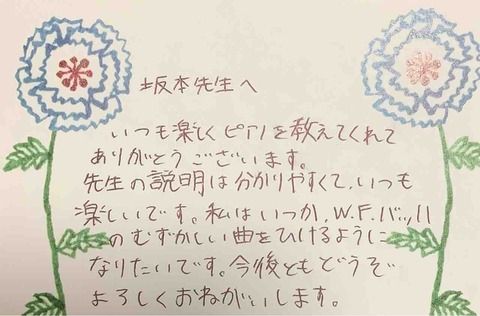 坂本先生へ
いつも楽しくピアノを教えてくれて
ありがとうございます。
先生の説明は分かりやすくて、いつも
楽しいです。私はいつか、W.F.バッハ
のむずかしい曲をひけるように
なりたいです。今後ともどうぞ
よろしくおねがいします。